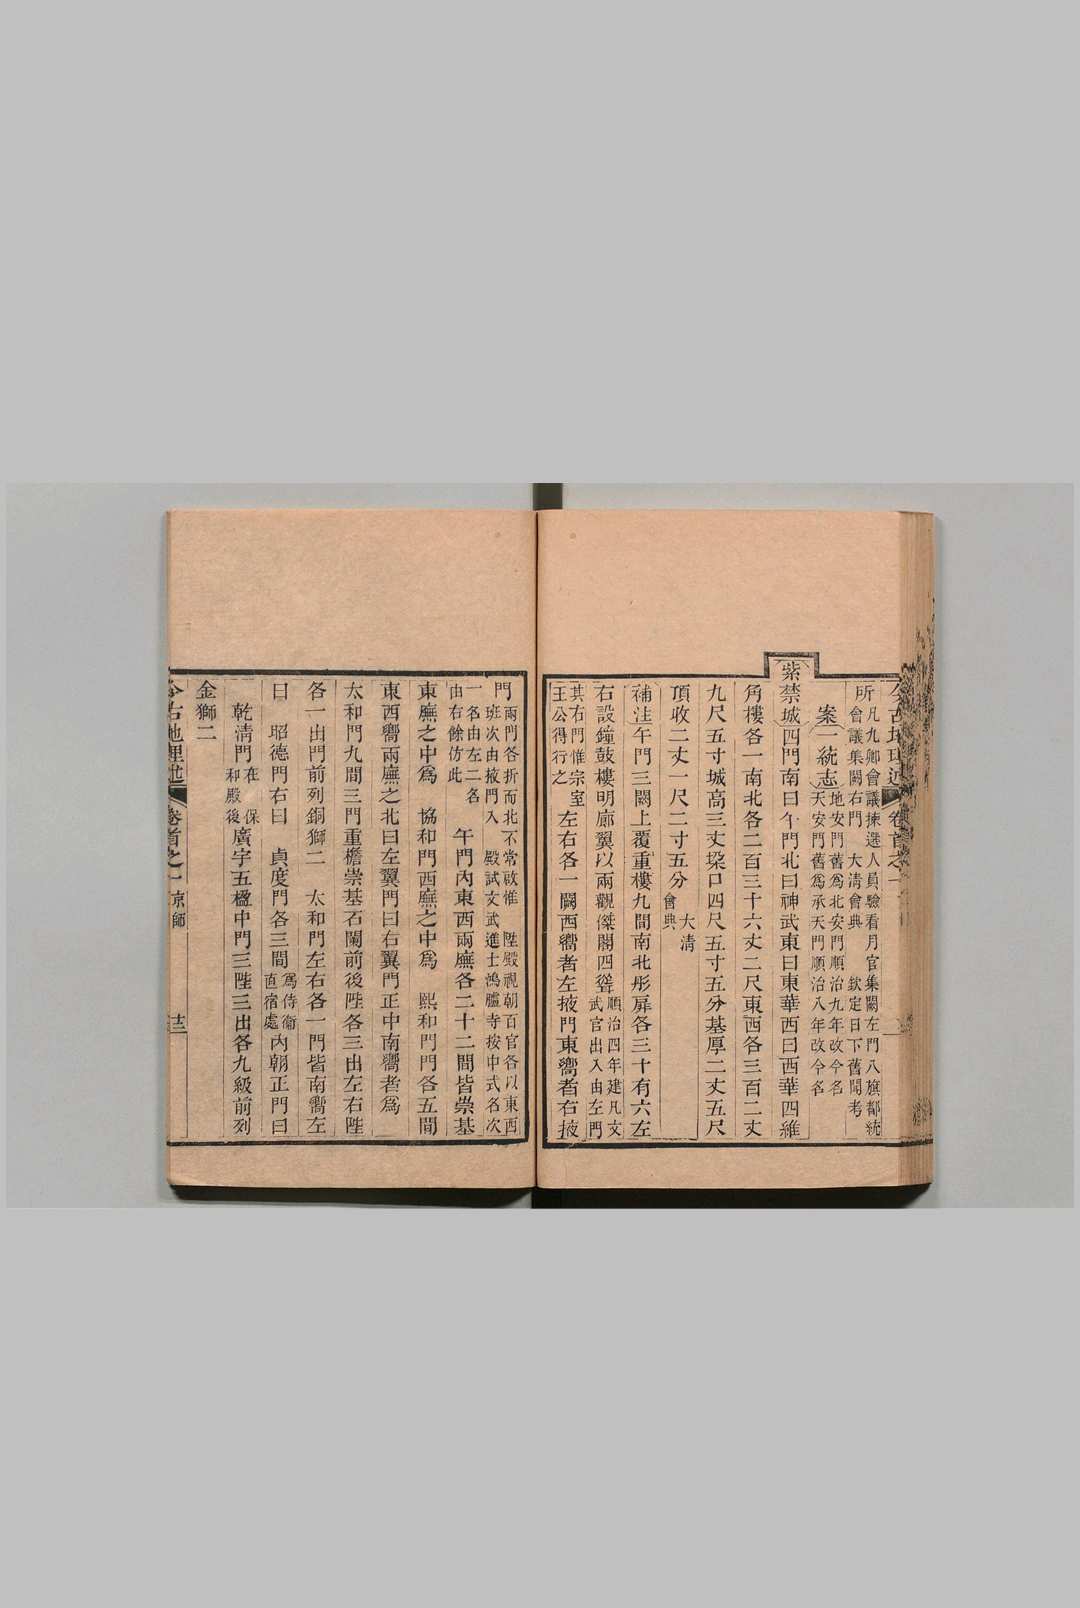 所凡九卿會議揀選人員驗看月官集闕左門八旗都統
會議集闕右門 大清會典 欽定日下舊聞考
案一統志地安門舊爲北安門順治九年改今名
天安門舊爲承天門順治八年改今名
紫禁城四門南曰午門北曰神武東曰東華西曰西華四維
角樓各一南北各二百三十六丈二尺東西各三百二丈
九尺五寸城高三丈垜口四尺五寸五分基厚二丈五尺
頂收二丈一尺二寸五分 大清
會典
補注午門三闕上覆重樓九間南北彤扉各三十有六左
右設鐘鼓樓明廊翼以兩觀傑閣四聳 順治四年建凡文
武官出入由左門
其右門惟宗室
王公得行之 左右各一闕西嚮者左掖門東嚮者右掖
門 兩門各折而北不常啟惟 陞殿視朝百官各以東西
班次由掖門入 殿試文武進士鴻臚寺按中式名次
一名由左二名
由右餘仿此 午門內東西兩廡各二十二間皆崇基
東廡之中爲 協和門西廡之中爲 熙和門門各五間
東西嚮兩廡之北曰左翼門曰右翼門正中南嚮者爲
太和門九間三門重檐崇基石闌前後陛各三出左右陛
各一出門前列銅獅二 太和門左右各一門皆南嚮左
曰 昭德門右曰 貞度門各三間 爲侍衞
直宿處 內朝正門曰
乾清門 在 保
和殿後 廣宇五楹中門三陛三出各九級前列
金獅二
今古地理述 卷首之一 京師 十三